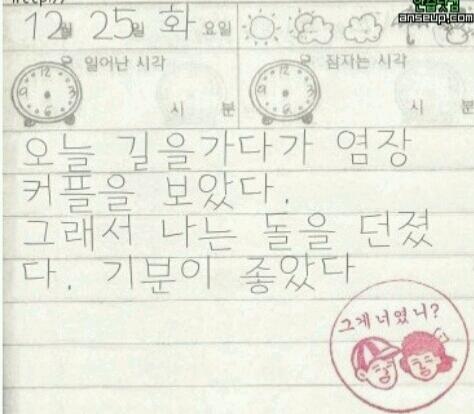 12월 25일 화요일
일어난 시각
잠자는 시각
시 분
시 분
오늘 길을가다가 염장
커플을 보았다.
그래서 나는 돌을 던졌
다. 기분이 좋았다
그게 너였니?
anseup.com